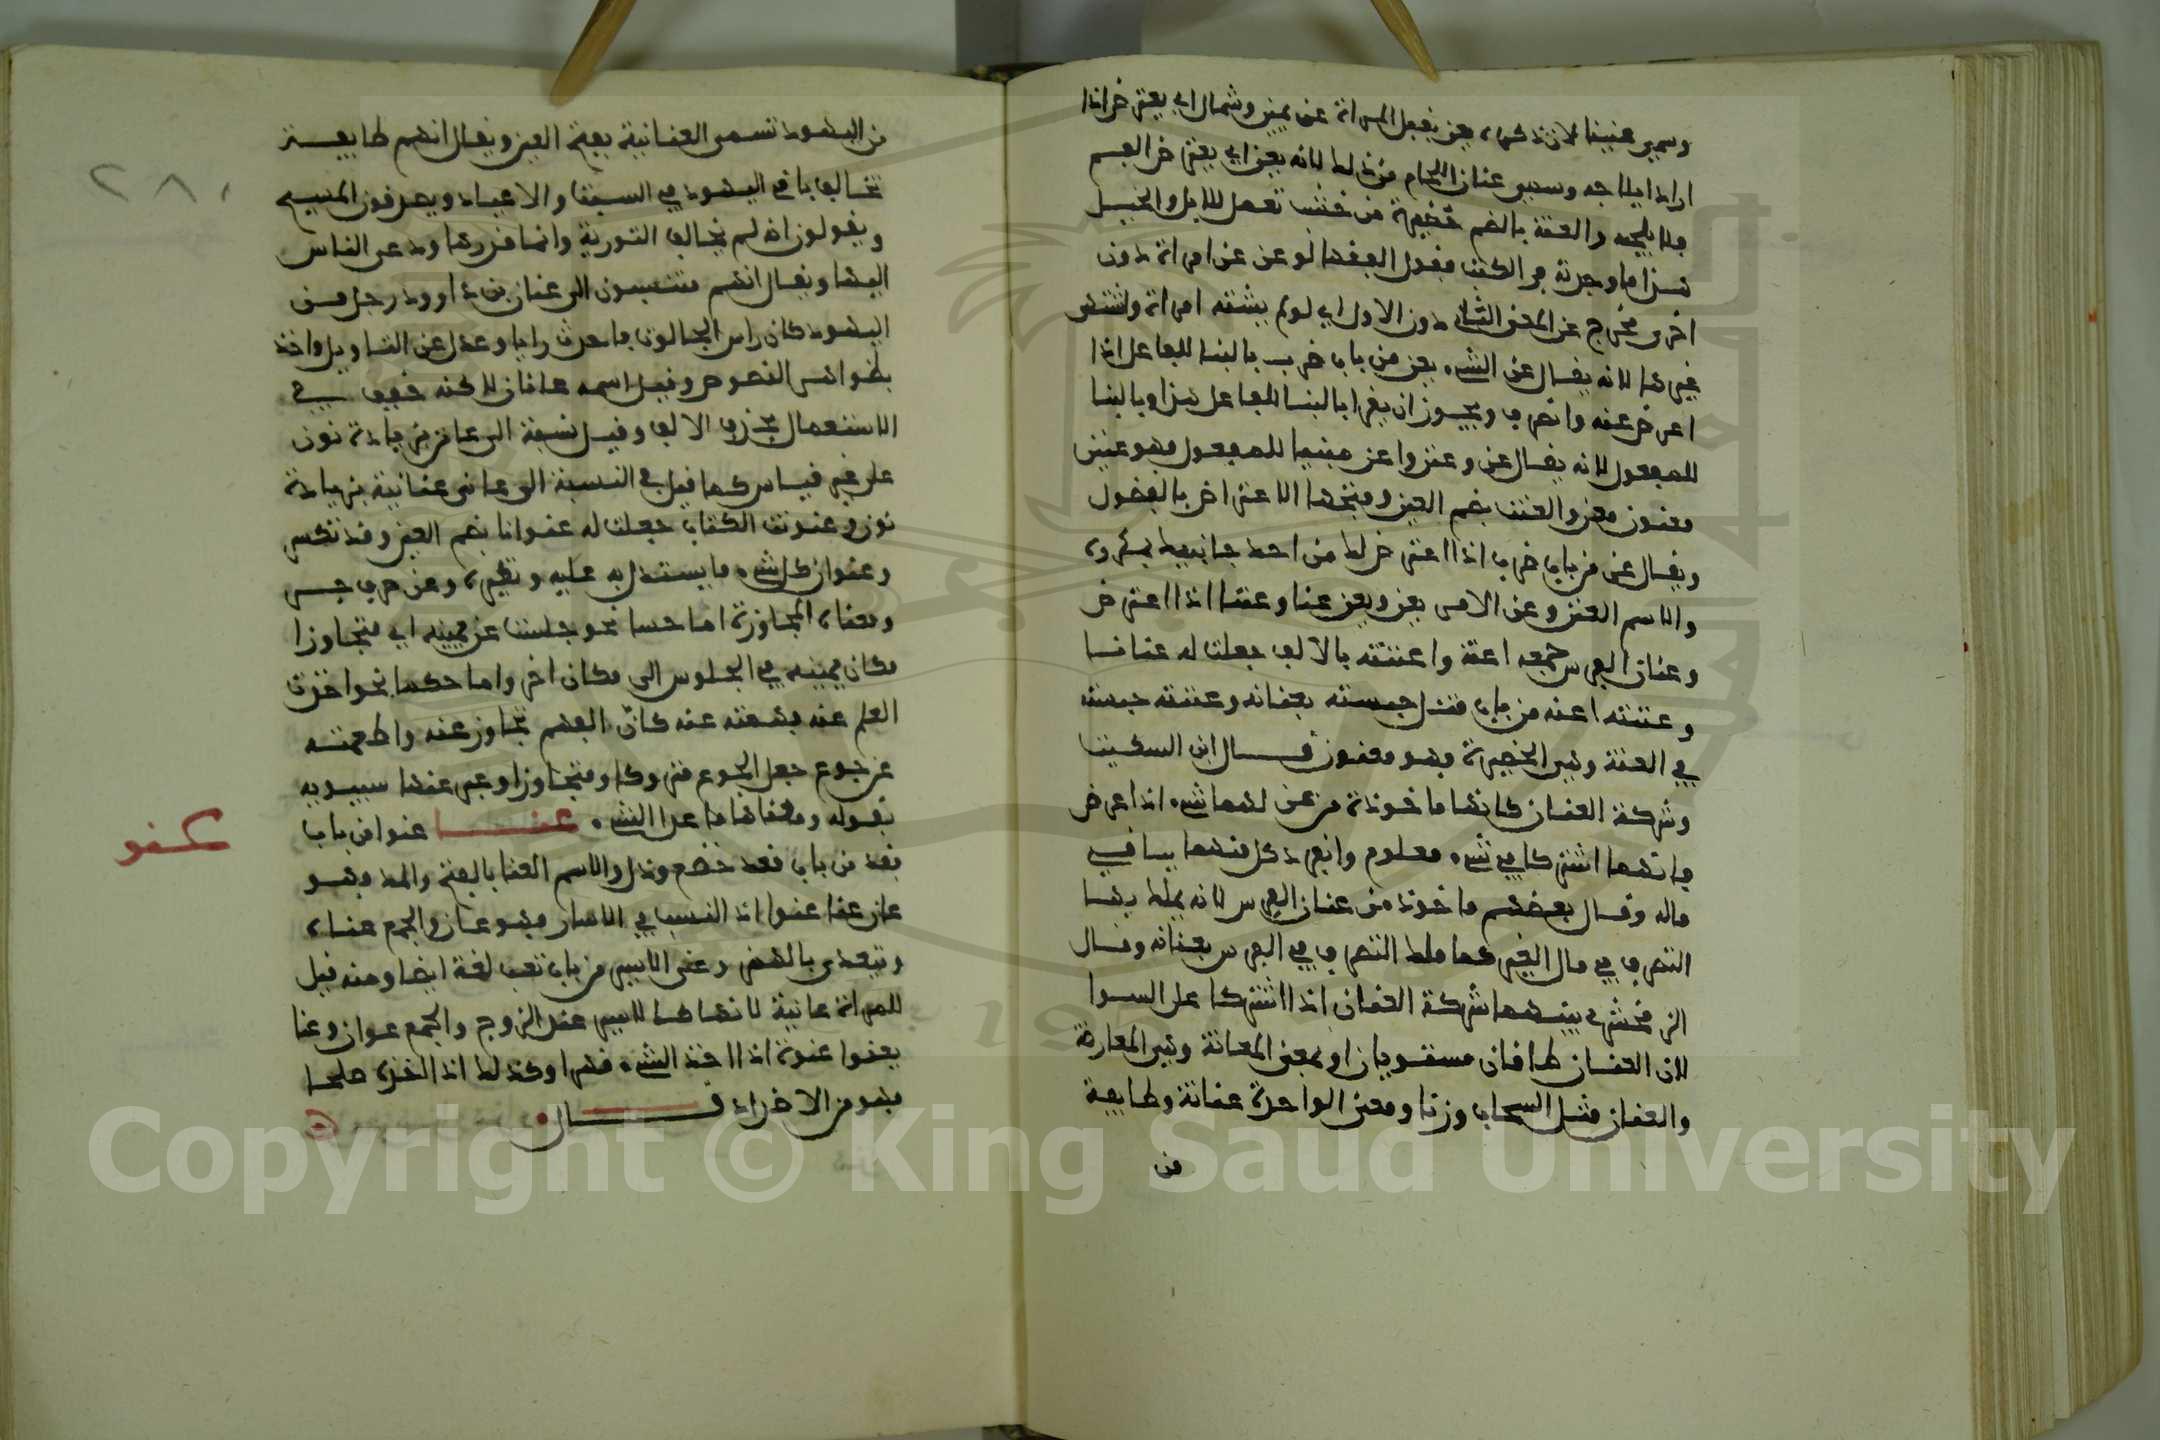 وسمي عنينا لان ذكره يعن لقبل المراة عن يمين وشمال اي يعترض اذا
اراد ايلاجه وسمي عنان اللجام من ذلك لانه يعن اي يعترض الفم
فلا يلجه والعنة بالضم حظيرة من خشب تعمل للابل والخيل
هذا ما وجدته في الكتب فقول الفقها لو عن عن امراة دون
اخرى مخرج على المعنى الثاني دون الاول اي لو لم يشته امراة واشتهى
غيرها لانه يقال عن الشيء يعن من باب ضرب بالبنا للفاعل اذا
اعرض عنه وانصرف ويجوز ان يقرا بالبنا للفاعل هذا وبالبنا
للمفعول لانه يقال عن وعنن واعن مبنيا للمفعول فهو عنين
معنون معن والعنن بضم العين وفتحها الاعتراض بالفضول
ويقال عن من باب ضرب اذا اعترض لك من احد جانبيك بمكروه
والاسم العنن وعن الامر يعن ويعن عنا وعننا اذا اعترض
وعنان الفرس جمعه اعنة واعننته بالالف جعلت له عنانا
وعننته اعنه من باب قتل حبسته بعنانه وعننته حبسته
في العنة وهي الحظيرة فهو معنون قال ابن السكيت
وشركة العنان كانها ماخوذة من عن لهما شيء اذا عرض
فانهما اشتركا في شيء معلوم وانفرد كل منهما بباقي
ماله وقال بعضهم ماخوذ من عنان الفرس لانه يملك بها
التصرف في مال الغير كما ملك التصرف في الفرس بعنانه وقال
الزمخشري بينهما شركة العنان اذا اشتركا على السوا
لان العنان طاقان مستويان او بمعنى المعانة وهي المعارضة
والعنان مثل السحاب وزنا ومعنى الواحدة عنانة وطايفة
من
٢٨٠
من اليهود تسمى العنانية بفتح العين ويقال انهم طايفة
تخالف باقي اليهود في السبت والاعياد ويصدقون المسيح
ويقولون انه لم يخالف التورية وانما قررها ودعى الناس
اليها ويقال انهم منتسبون الى عنان بن داوود رجل من
اليهود كان راس الجالوت فاحدث رايا وعدل عن التاويل واخذ
بظواهر النصوص وقيل اسمه عانان لكنه خفف في
الاستعمال بحذف الالف وقيل نسبة الى عاني بزيادة نون
على غير قياس كما قيل في النسبة الى ماني منانية بزيادة
نون وعنونت الكتاب جعلت له عنوانا بضم العين وقد تكسر
وعنوان كل شيء ما يستدل به عليه ويظهره وعن حرف جر
ومعناه المجاوزة اما حسا نحو جلست عن يمينه اي متجاوزا
مكان يمينه في الجلوس الى مكان اخر واما حكما نحو اخذت
العلم عنه فهمته عنه كان الفهم تجاوز عنه واطعمته
عن جوع جعل الجوع متروكا ومتجاوزا وعبر عنها سيبويه
بقوله ومعناها ما عدا الشيء عنا عنوا من باب
كنو
قعد من باب قعد خضع وذل والاسم العنا بالفتح والمد فهو
عان عنا عنوا اذا انسب في الاسار فهو عان والجمع عناه
ويتعدى بالهمز وعنى الاسير من باب تعب لغة ايضا ومنه قيل
للمراة عانية لانها كالاسير عند الزوج والجمع عوان وعنا
يعنوا عنوة اذا اخذ الشيء قهرا وكذلك اذا اخذه صلحا
فهو من الاضداد قال
Copyright © King Saud University